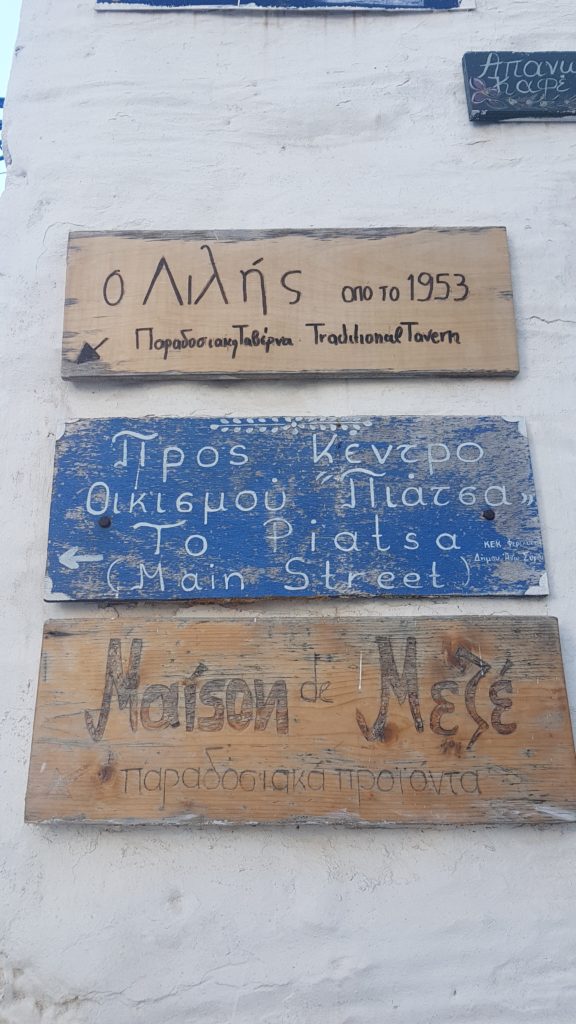 Απανω
Καφέ
Ο Λιλής απο το 1953
Παραδοσιακη Ταβέρνα Traditional Tavern
Προς Κεντρο
Οικισμού "Πιάτσα"
To Piatsa
(Main Street)
ΚΕΚ
Δήμου Άνω Σύρου
Maison de Μεζέ
παραδοσιακά προϊόντα